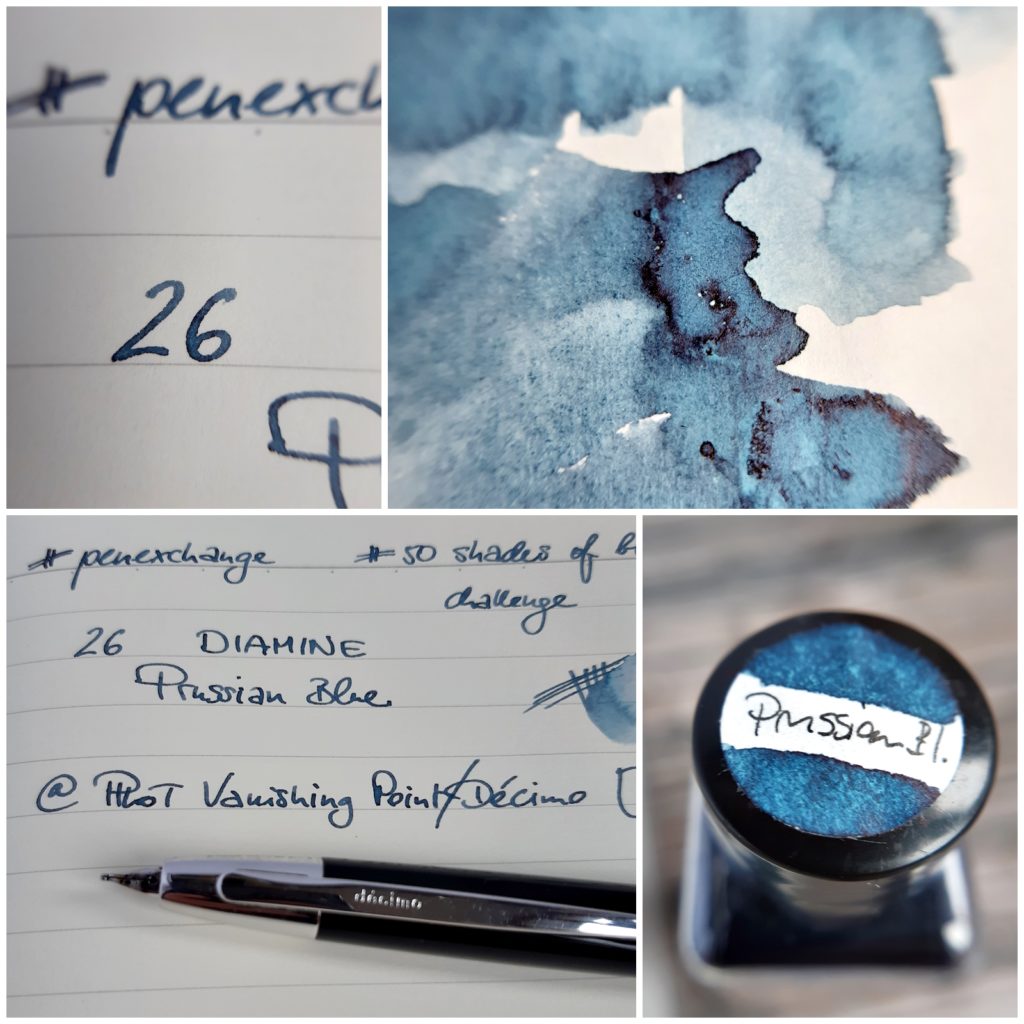 #penexch
26
P
#penexchange #50 shades of b
challenge
26 DIAMINE
Prussian Blue
@ PILOT Vanishing Point/Décimo
décimo
Prussian Bl.